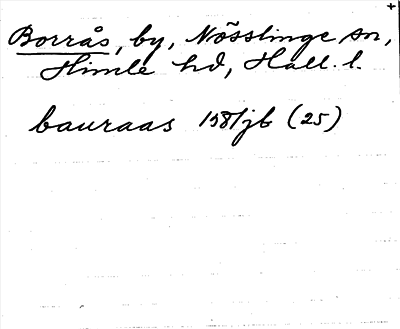 Borrås, by, Nösslinge sn,
Himle hd, Hall. l.
bauraas 1581 jb (25)